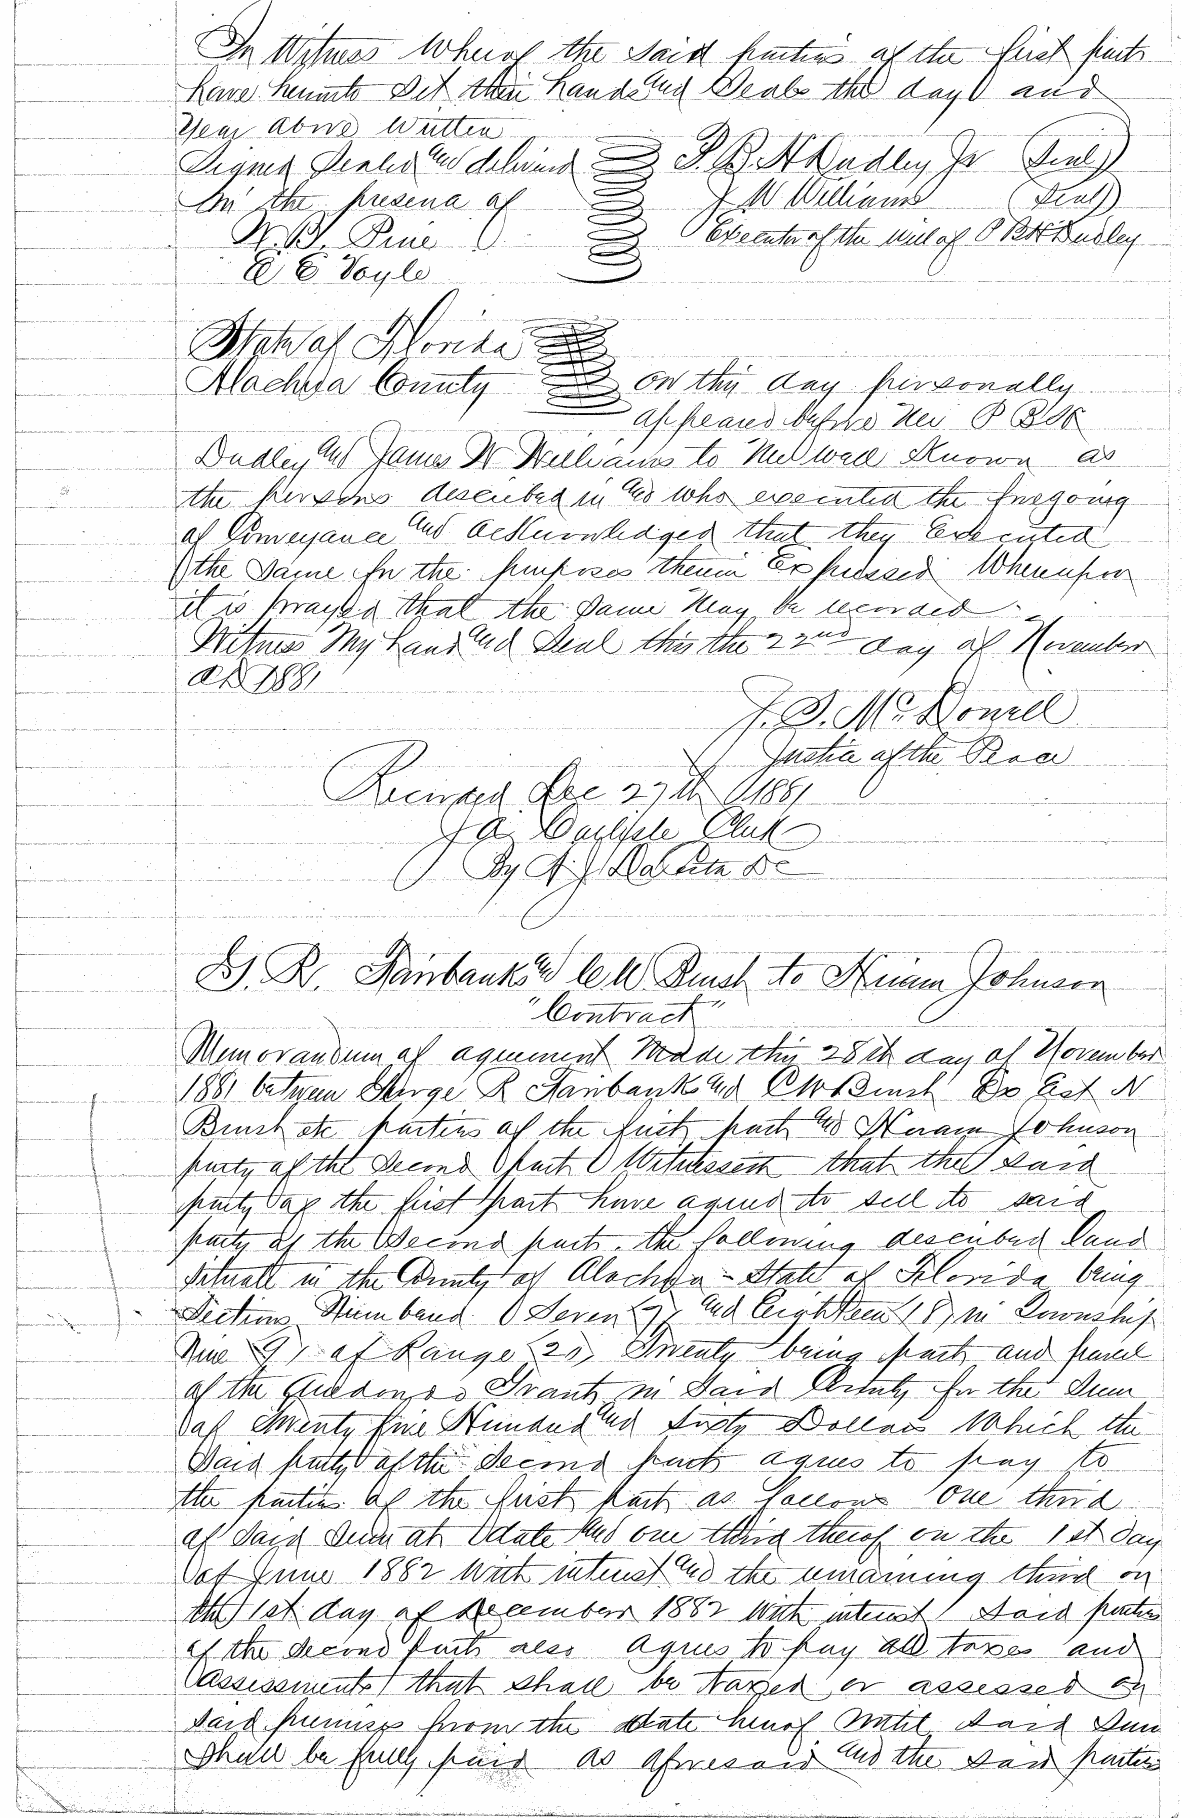 In Witness Whereof the said parties of the first part
have hereunto Set their hands and Seals the day and
Year above Written
Signed Sealed and delivered P. B. H Dudley Jr (Seal)
In the presence of J W Williams (Seal)
W. B. Pine Executor of the will of P B H Dudley
E E Voyle
State of Florida
Alachua County on this day personally
appeared before Me P B H
Dudley and James W Williams to Me well Known as
the persons described in and who executed the foregoing
of Conveyance and acknowledged that they Executed
the Same for the purposes therein Expressed Whereupon
it is prayed that the Same May be recorded.
Witness My hand and Seal this the 22nd day of November
AD 1881
J. S. McDonell
Justice of the Peace
Recorded Dec 27th 1881
J A. Carlisle Clerk
By A. J. DaCosta DC
G. R. Fairbanks and C W Brush to Hiram Johnson
"Contract"
Memorandum of agreement Made this 28th day of November
1881 between George R Fairbanks and C W Brush Ex Est N
Brush etc parties of the first part and Hiram Johnson
party of the Second part Witnesseth that the said
party of the first part have agreed to sell to said
party of the Second part. the following described land
Situate in the County of Alachua - State of Florida being
Sections Numbered Seven (7) and Eighteen (18) in Township
Nine (9) of Range (20) Twenty being part and parcel
of the Arredondo Grant in Said County for the Sum
of Twenty five Hundred and Sixty Dollars Which the
Said party of the Second part agrees to pay to
the parties of the first part as follows One third
of Said Sum at date and one third thereof on the 1st day
of June 1882 With interest and the remaining third on
the 1st day of December 1882 With interest Said parties
of the Second part also agrees to pay all taxes and
assessments that shall be taxed or assessed on
said premises from the date hereof Until said Sum
Shall be fully paid as aforesaid and the said parties